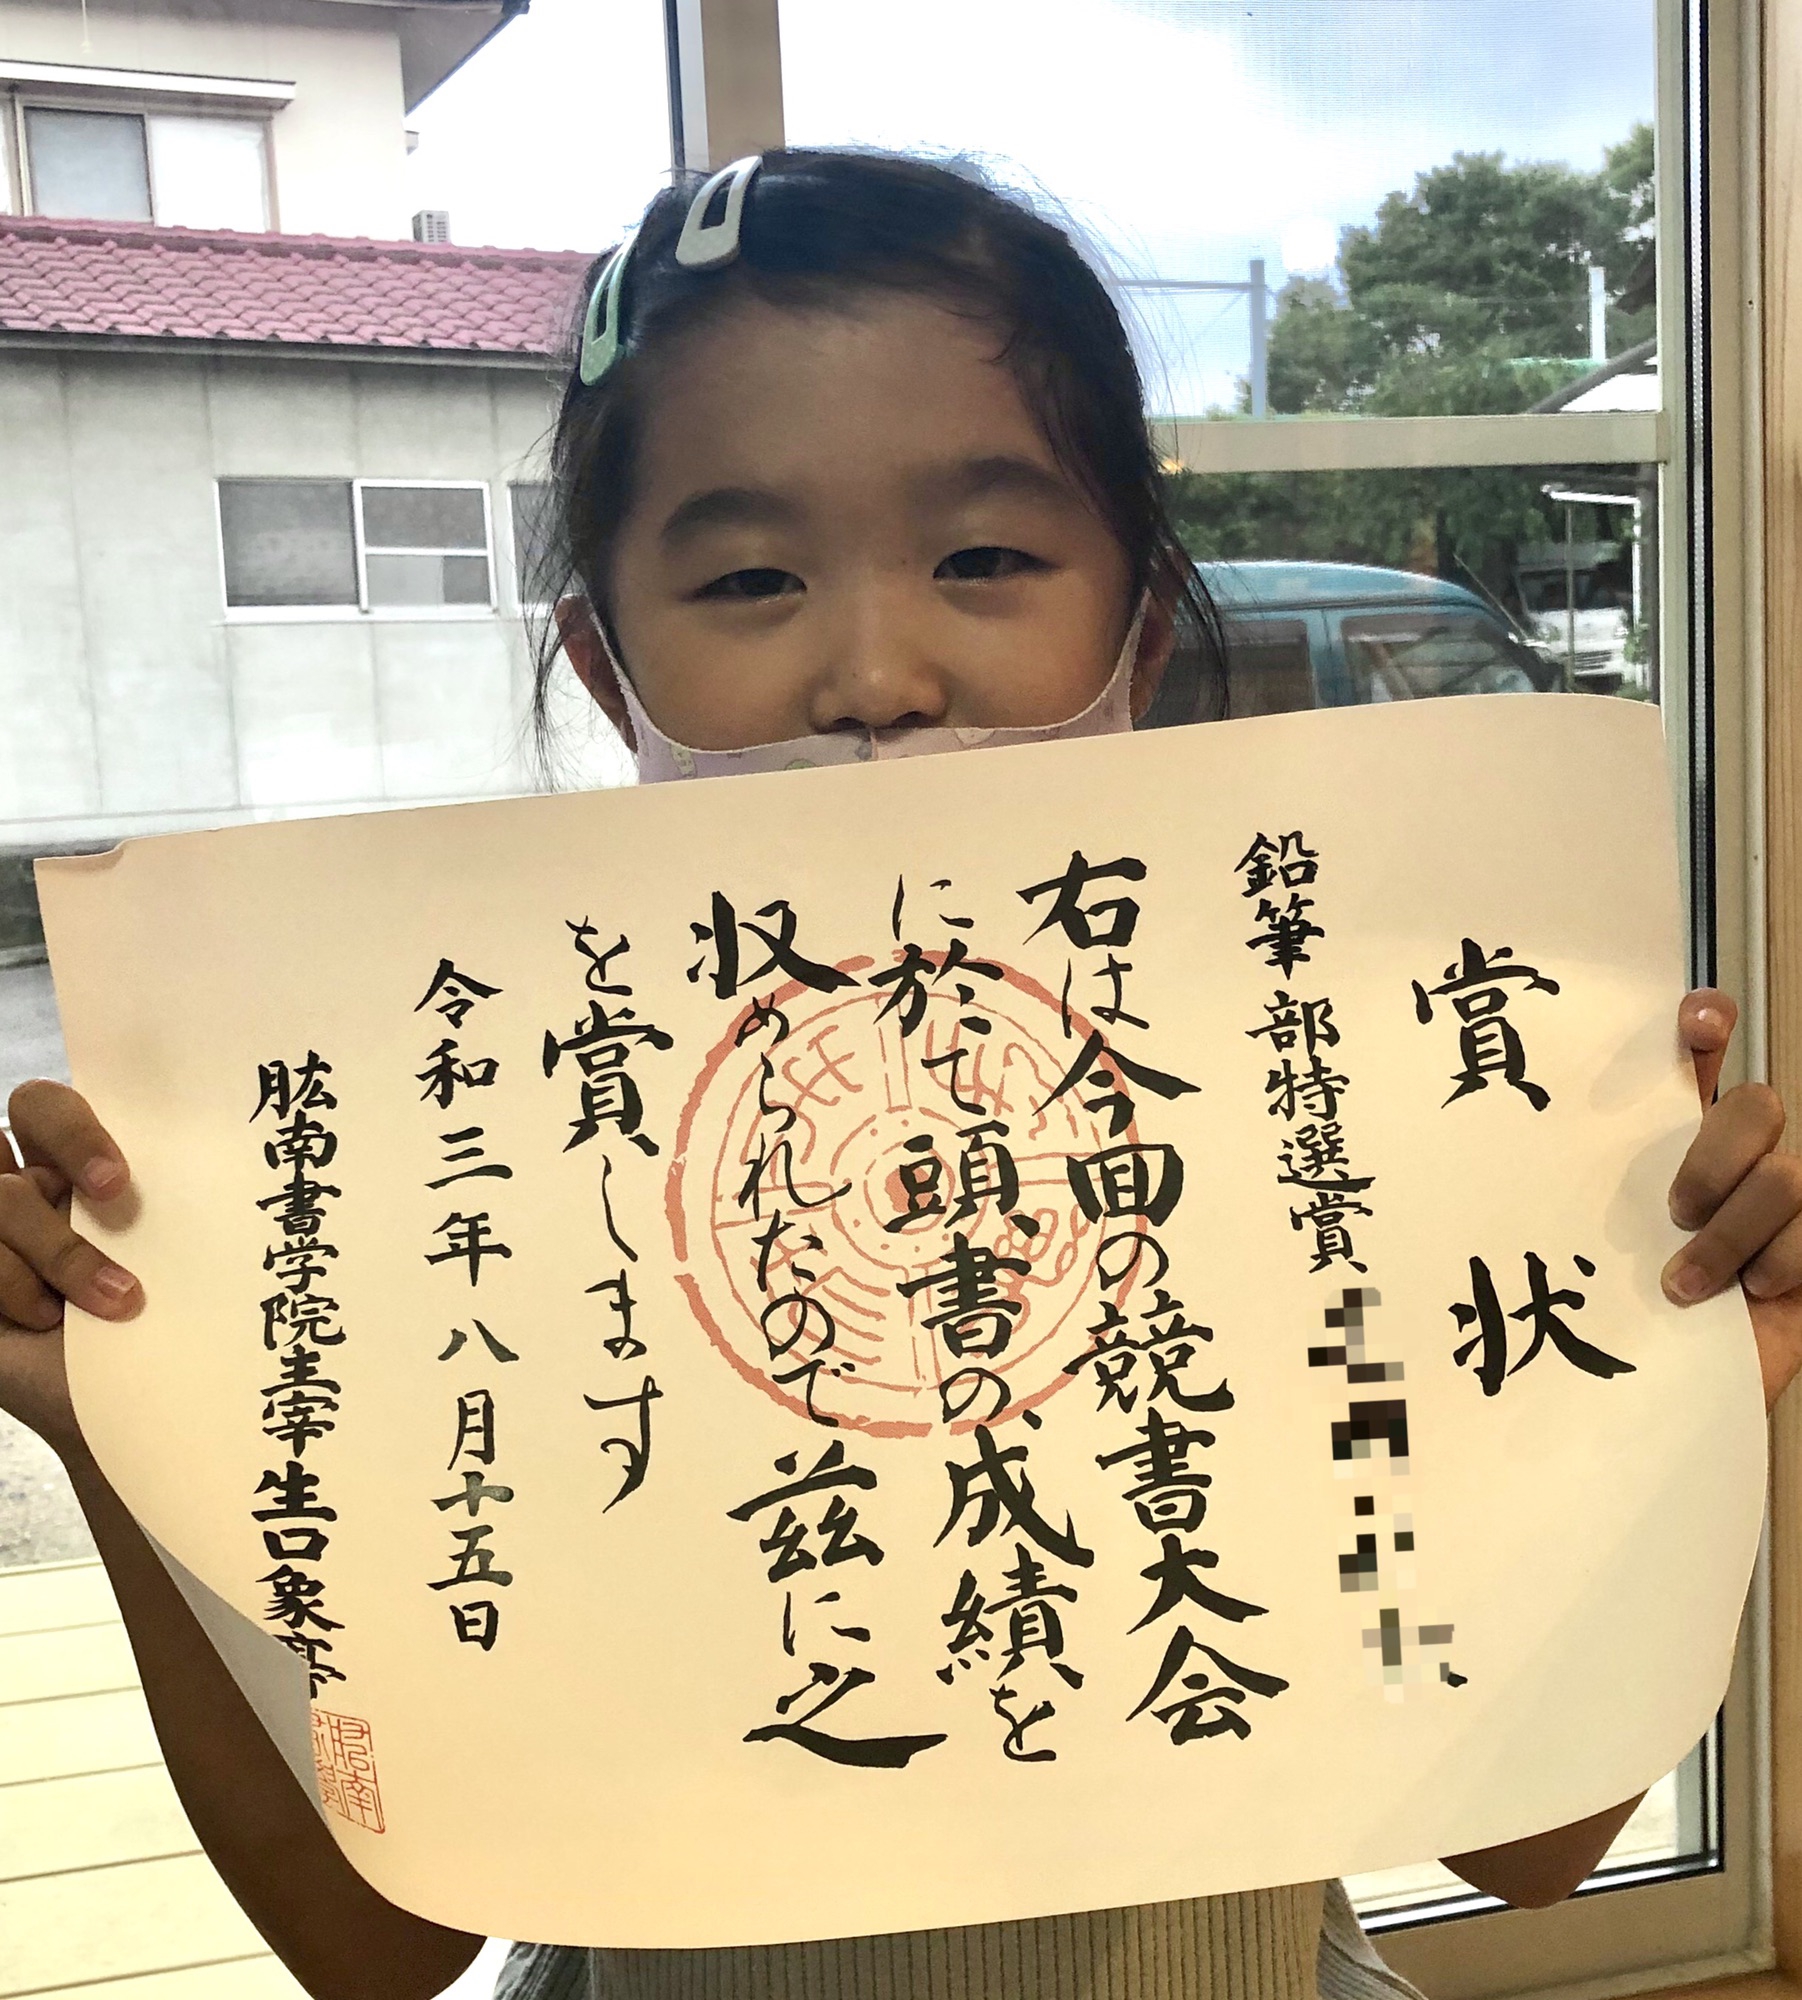 賞状
鉛筆部特選賞
右は今回の競書大会
に於て頭書の成績を
収められたので茲に之
を賞します
令和三年八月十五日
肱南書学院主宰生口象